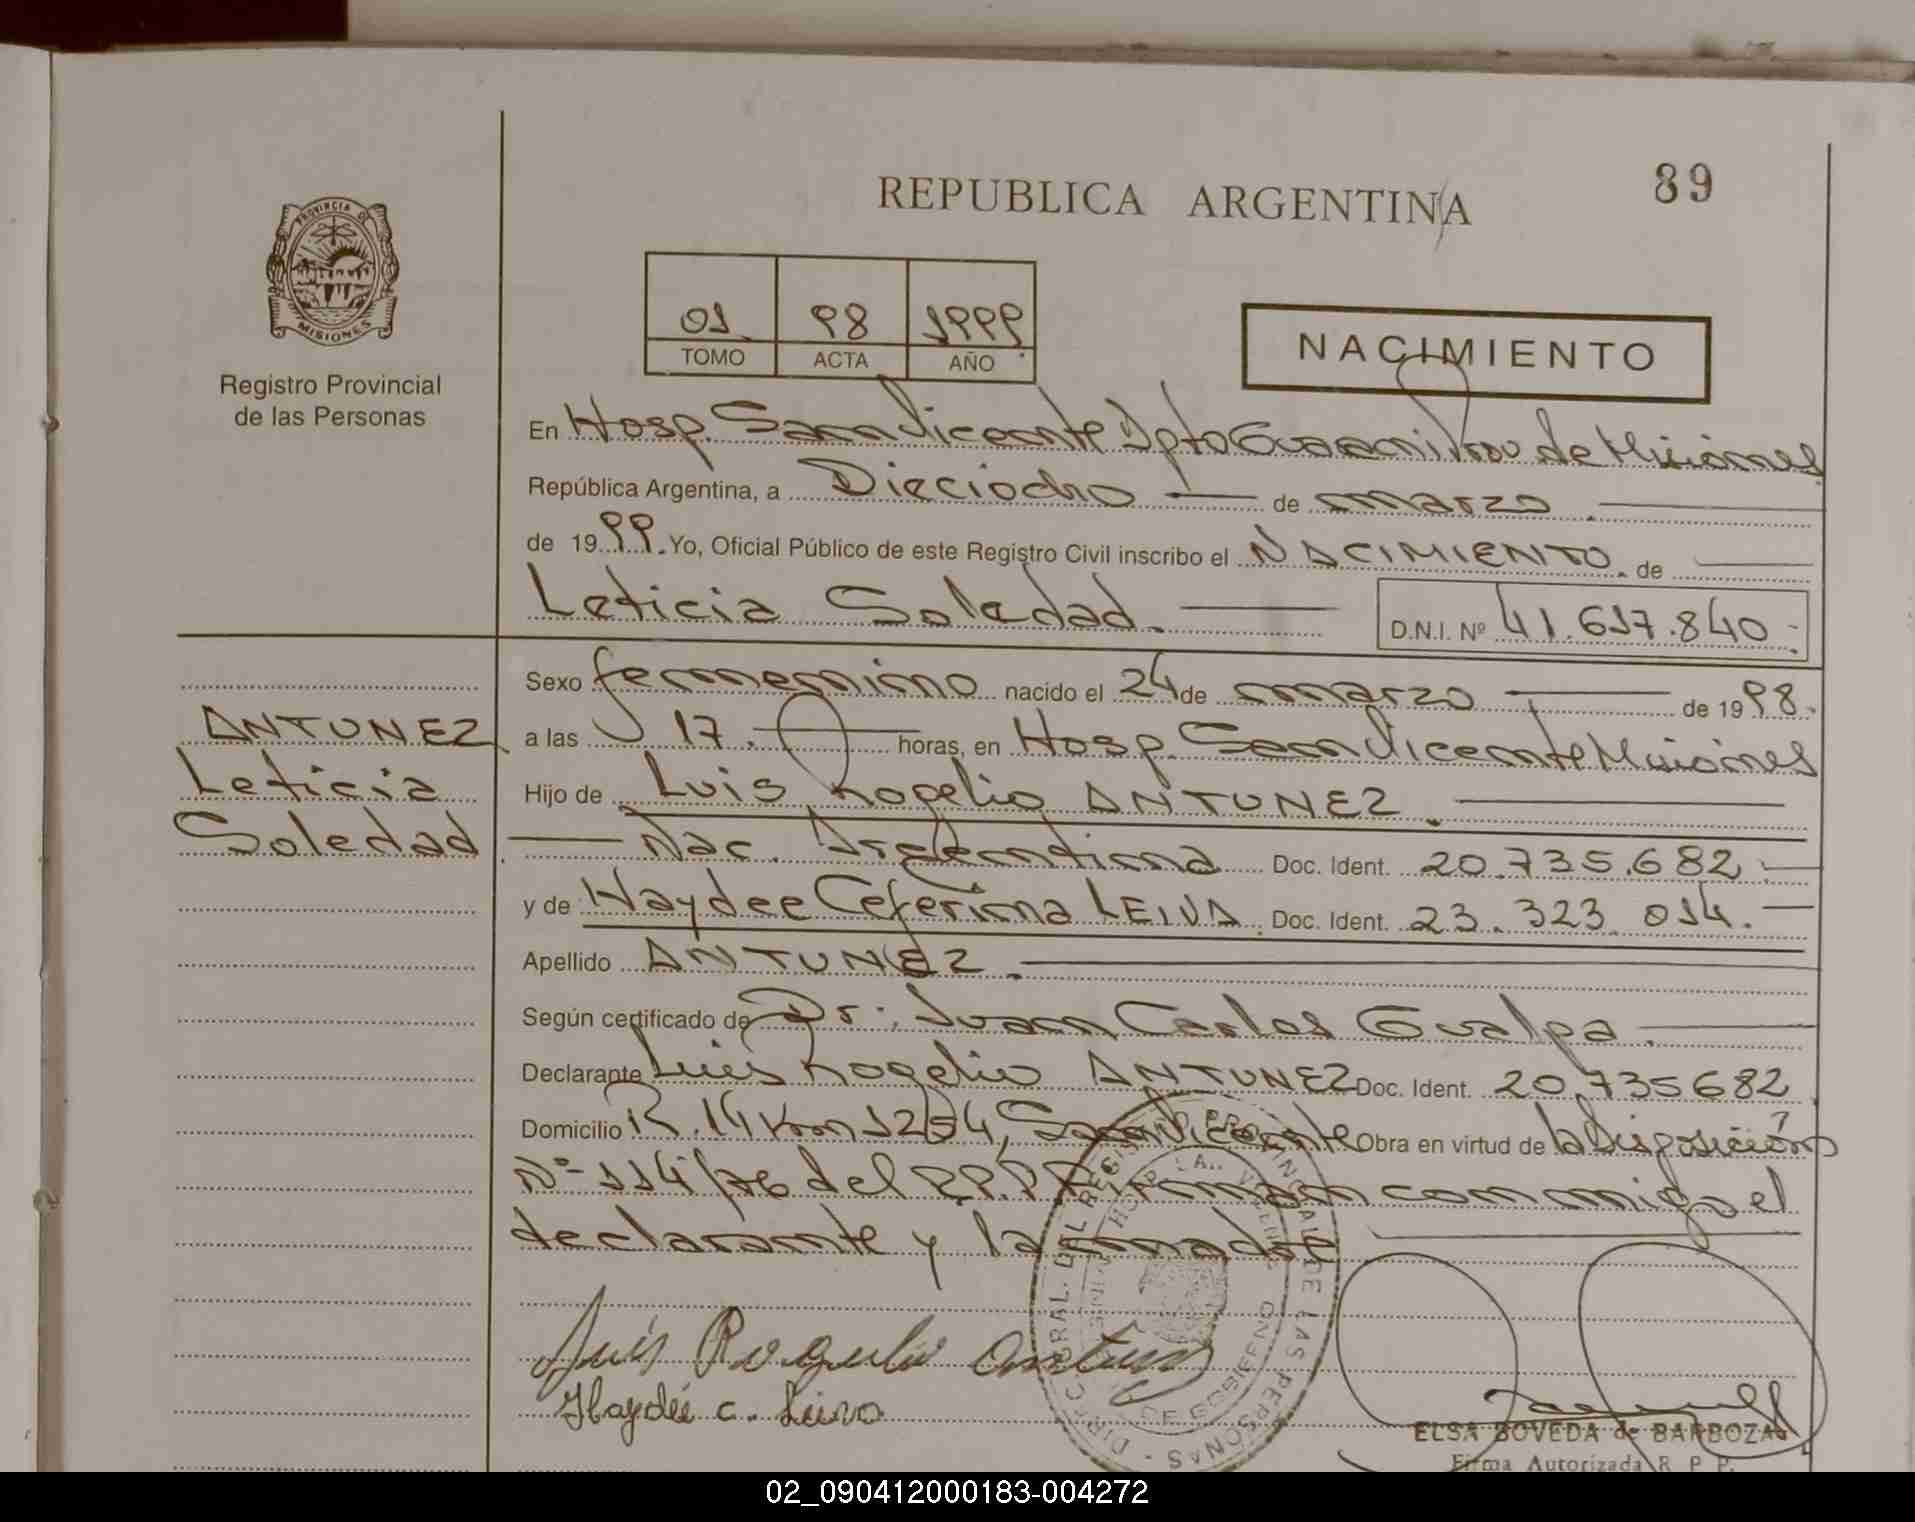 REPUBLICA ARGENTINA
89
PROVINCIA DE
MISIONES
Registro Provincial
de las Personas
01 98 1999
TOMO ACTA AÑO
NACIMIENTO
En Hosp. San Vicente Dpto Guaraní Prov de Misiones
República Argentina, a Dieciocho de marzo
de 1999. Yo, Oficial Público de este Registro Civil inscribo el NACIMIENTO. de
Leticia Soledad.
D.N.I. Nº 41.617.840.-
ANTUNEZ
Leticia
Soledad
Sexo femenino nacido el 24 de marzo de 1998.
a las 17. horas, en Hosp. San Vicente Misiones
Hijo de Luis Rogelio ANTUNEZ.
Nac. Argentina Doc. Ident. 20.735.682.
y de Haydee Ceferina LEIVA. Doc. Ident. 23.323.014.
Apellido ANTUNEZ.
Según certificado de Dr. Juan Carlos Gualpa.
Declarante Luis Rogelio ANTUNEZ Doc. Ident. 20.735682
Domicilio R.14 Km 1254, San Vicente Obra en virtud de la Disposición
Nº 114/76 del R.P.P. Firman conmigo el
declarante y la madre
Luis Rogelio Antunez
Haydeé C. Leiva
DIREC. GRAL. DEL REGISTRO PROVINCIAL DE LAS PERSONAS
DE GOBIERNO
ELSA BOVEDA de BARBOZA
Firma Autorizada R P P.
02_090412000183-004272